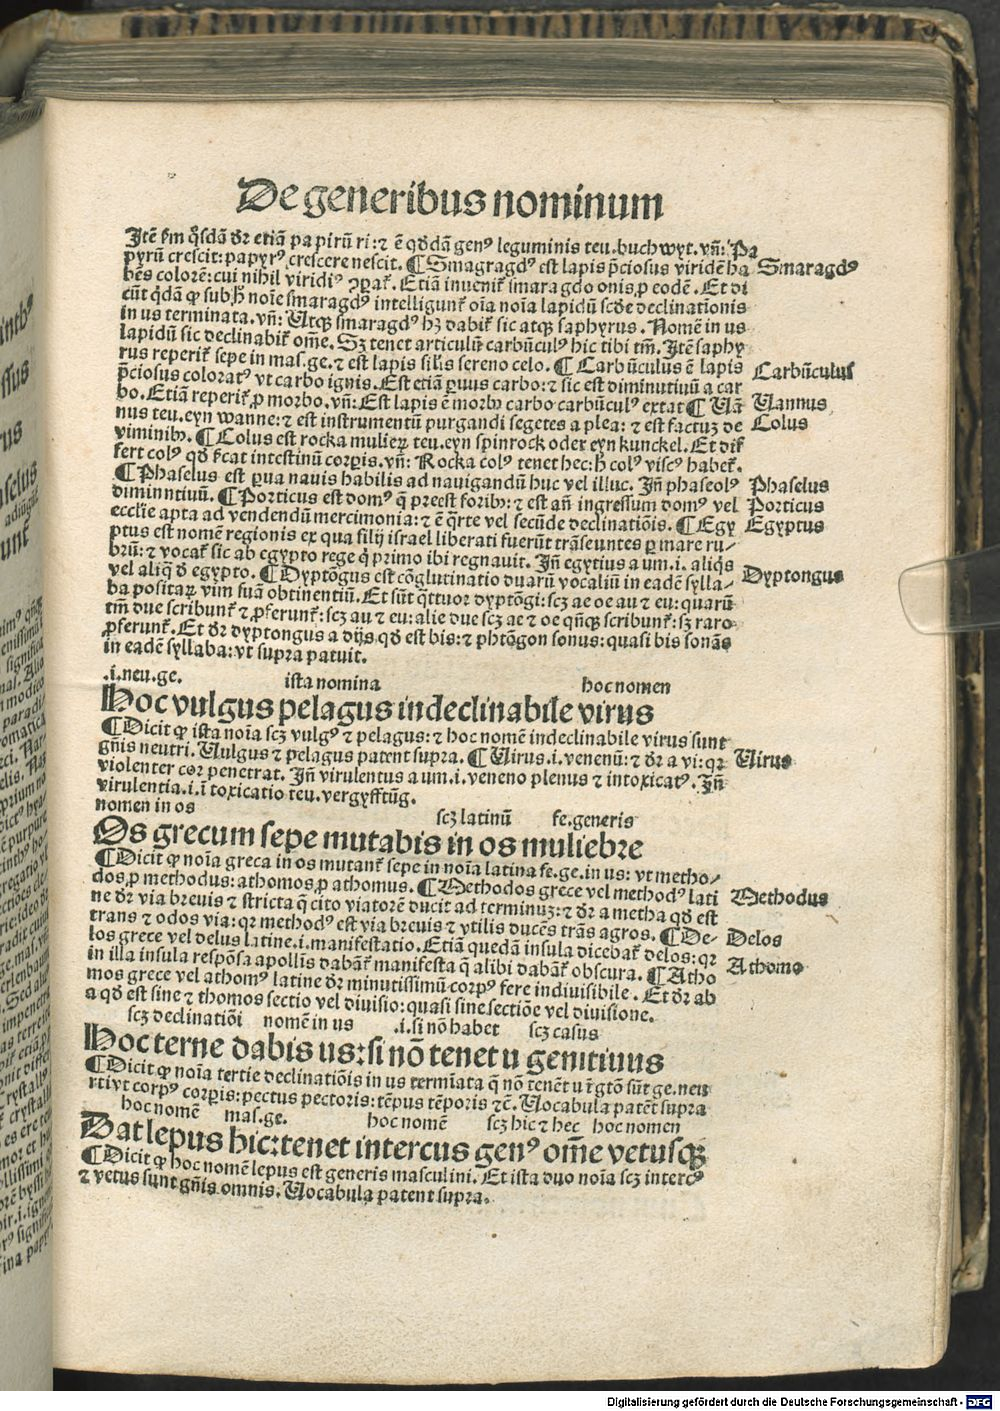 De generibus nominum
Itē ẜm q̊sdā dr̄ etiā papirū ri: ⁊ ē qd̄dā genꝰ leguminis teu. buchwyt. vn̄: Pa
pyrū crescit: papyrꝰ crescere nescit. ¶ Smagragdꝰ est lapis p̄ciosus viridē ha
Smaragdꝰ
bēs colorē: cui nihil viridiꝰ ꝯparat̄. Etiā inuenit̄ smaragdo onis, ꝓ eodē. Et di
cūt q̄dā ꝙ sub h̄ noīe smaragdꝰ intelligunt̄ oīa noīa lapidū scd̄e declinationis
in us terminata. vn̄: Atqꝫ smaragdꝰ hꝫ dabit̄ sic atqꝫ saphyrus. Nomē in us
lapidū sic declinabit̄ om̄e. Sꝫ tenet articulū carbūculꝰ hic tibi tm̄. Itē saphy
rus reperit̄ sepe in mas. ge. ⁊ est lapis sil̄is sereno celo. ¶ Carbūculus ē lapis
Carbūculus
p̄ciosus coloratꝰ vt carbo ignis. Est etiā ꝑuus carbo: ⁊ sic est diminutiuū a car
bo. Etiā reperit̄ ꝓ morbo. vn̄: Est lapis ē morbꝰ carbo carbūculꝰ extat ¶ Uā
Uannus
nus teu. eyn wanne: ⁊ est instrumentū purgandi segetes a plea: ⁊ est factuꝫ de
Colus
viminibꝰ. ¶ Colus est rocka mulieꝝ teu. eyn spinrock oder eyn kunckel. Et dif
fert colꝰ qd̄ ẜcat intestinū corꝑis. vn̄: Rocka colꝰ tenet hec: h̄ colꝰ viscꝰ habet̄.
¶ Phaselus est ꝑua nauis habilis ad nauigandū huc vel illuc. Īn̄ phaseolꝰ
Phaselus
diminntiuū. ¶ Porticus est domꝰ q̄ preest foribꝰ: ⁊ est an̄ ingressum domꝰ vel
Porticus
ecclīe apta ad vendendū mercimonia: ⁊ ē q̄rte vel secūde declinatiōis. ¶ Egy
Egyptus
ptus est nomē regionis ex qua filij israel liberati fuerūt trāseuntes ꝑ mare ru-
brū: ⁊ vocat̄ sic ab egypto rege q̄ primo ibi regnauit. Īn̄ egytius a um. i. aliq̄s
vel aliq̄ d̄ egypto. ¶ Dyptōgus est cōglutinatio duarū vocaliū in eadē sylla-
Dyptongus
ba positaꝝ vim suā obtinentiū. Et sūt q̄ttuor dyptōgi: scꝫ ae oe au ⁊ eu: quarū
tm̄ due scribunt̄ ⁊ ꝓferunt̄: scꝫ au ⁊ eu: alie due scꝫ ae ⁊ oe qn̄qꝫ scribunt̄: sꝫ raro
ꝓferunt̄. Et dr̄ dyptongus a dijs, qd̄ est bis: ⁊ phtōgon sonus: quasi bis sonās
in eadē syllaba: vt supra patuit.
.i. neu. ge. ista nomina hoc nomen
Hoc vulgus pelagus indeclinabile virus
¶ Dicit ꝙ ista noīa scꝫ vulgꝰ ⁊ pelagus: ⁊ hoc nomē indeclinabile virus sunt
gn̄is neutri. Uulgus ⁊ pelagus patent supra. ¶ Uirus. i. venenū: ⁊ dr̄ a vi: qr
Uirus
violenter cor penetrat. Īn̄ virulentus a um. i. veneno plenus ⁊ intoxicatꝰ. Īn̄
virulentia. i. ītoxicatio teu. vergyfftūg.
nomen in os scꝫ latinū fe. generis
Os grecum sepe mutabis in os muliebre
¶ Dicit ꝙ noīa greca in os mutant̄ sepe in noīa latina fe. ge. in us: vt metho-
dos, ꝓ methodus: athomos, ꝓ athomus. ¶ Methodos grece vel methodꝰ lati
Methodus
ne dr̄ via breuis ⁊ stricta q̄ cito viatorē ducit ad terminuꝫ: ⁊ dr̄ a metha qd̄ est
trans ⁊ odos via: qr methodꝰ est via breuis ⁊ vtilis ducēs trās agros. ¶ De-
Delos
los grece vel delus latine. i. manifestatio. Etiā quedā insula dicebat̄ delos: qr
in illa insula respōsa apollīs dabāt̄ manifesta q̄ alibi dabāt̄ obscura. ¶ Atho
Athomꝰ
mos grece vel athomꝰ latine dr̄ minutissimū corpꝰ fere indiuisibile. Et dr̄ ab
a qd̄ est sine ⁊ thomos sectio vel diuisio: quasi sine sectiōe vel diuisione.
scꝫ declinatiōi nomē in us .i. si nō habet scꝫ casus
Hoc terne dabis us: si nō tenet u genitiuus
¶ Dicit ꝙ noīa tertie declinatiōis in us termīata q̄ nō tenēt u ī gtō sūt ge. neu
rtivt corpꝰ corꝑis: pectus pectoris: tēpus tēporis ⁊c̄. Uocabula patēt supra
hoc nomē mas. ge. hoc nomē scꝫ hic ⁊ hec hoc nomen
Dat lepus hic: tenet intercus genꝰ om̄e vetusqꝫ
¶ Dicit ꝙ hoc nomē lepus est generis masculini. Et ista duo noīa scꝫ intercꝰ
⁊ vetus sunt gn̄is omnis. Uocabula patent supra.
Digitalisierung gefördert durch die Deutsche Forschungsgemeinschaft - DFG